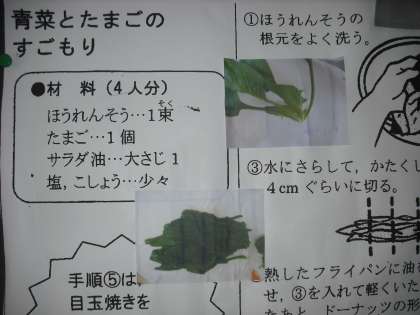 青菜とたまごの
すごもり
●材 料(4人分)
ほうれんそう…1束
そく
たまご…1個
サラダ油…大さじ1
塩,こしょう…少々
手順⑤は
目玉焼きを
①ほうれんそうの
根元をよく洗う。
③水にさらして,かたくし
4cmぐらいに切る。
熱したフライパンに油
せ,③を入れて軽くいた
たあと,ドーナッツの形